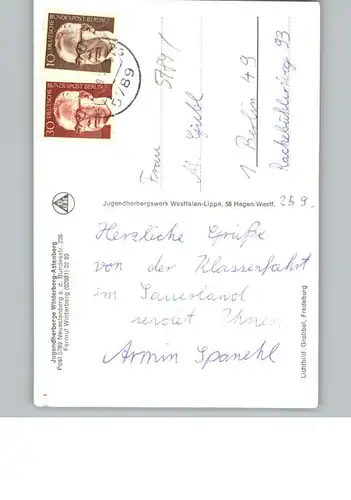 10 DEUTSCHE BUNDESPOST BERLIN
30 DEUTSCHE BUNDESPOST BERLIN
5789
Frau
Giebl
1 Berlin 49
93
Jugendherbergswerk Westfalen-Lippe, 58 Hagen/Westf.
259
Herzliche Grüße
von der Klassenfahrt
im Sauerland
sendet Ihnen
Armin Spanehl
Jugendherberge Winterberg-Astenberg
Post 5789 Neuastenberg a. d. Bundesstr. 236
Fernruf Winterberg (02981) 22 89
Lichtbild: Grobbel, Fredeburg